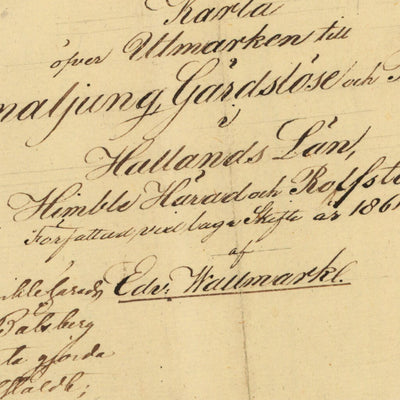 Karta
öfver Utmarken till
maljung, Gärdslöse och
i
Hallands Län,
Himble Härad och Rolfsto
Författad vid laga Skifte år 186
af
Edv. Wallmark.
Balsberg
gjorda